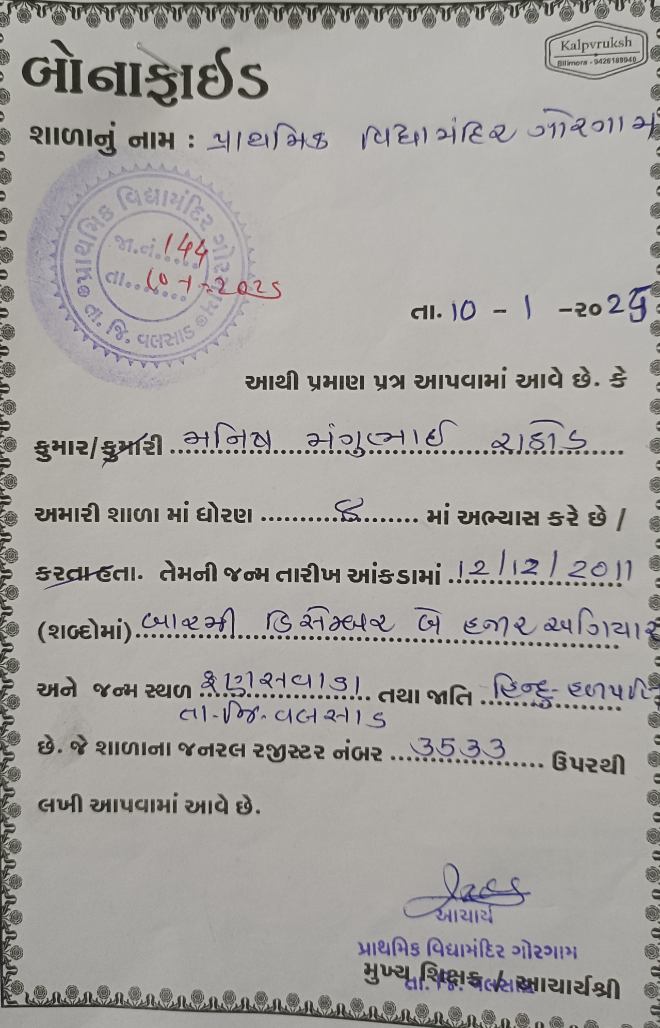 Kalpvruksh
Bilimora - 9426189940
બોનાફાઈડ
શાળાનું નામ : પ્રાથમિક વિદ્યામંદિર ગોરગામ
પ્રાથમિક વિદ્યામંદિર ગોરગામ
જા.નં. 144
તા. 10-1-2025
તા. જિ. વલસાડ
તા. 10 - 1 - ૨૦25
આથી પ્રમાણ પત્ર આપવામાં આવે છે. કે
કુમાર/કુમારી મનિષ મંગુભાઈ રાઠોડ
અમારી શાળા માં ધોરણ ૮ માં અભ્યાસ કરે છે /
કરતા હતા. તેમની જન્મ તારીખ આંકડામાં 12/12/2011
(શબ્દોમાં) બારમી ડિસેમ્બર બે હજાર અગિયાર
અને જન્મ સ્થળ ફણસવાડા તથા જાતિ હિન્દુ-હળપતિ
તા-જિ-વલસાડ
છે. જે શાળાના જનરલ રજીસ્ટર નંબર 3533 ઉપરથી
લખી આપવામાં આવે છે.
આચાર્ય
પ્રાથમિક વિદ્યામંદિર ગોરગામ
તા. જિ. વલસાડ
મુખ્ય શિક્ષક / આચાર્યશ્રી